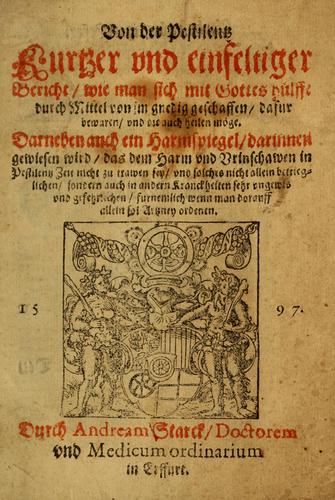 Von der Pestilentz
Kurtzer vnd einfeltiger
Bericht / wie man sich mit Gottes hülffe
durch Mittel von jm gnedig geschaffen / dafur
bewaren / vnd die auch heilen möge.
Darneben auch ein Harmspiegel / darinnen
gewiesen wird / das dem Harm vnd Vrinschawen in
Pestilentz Zeit nicht zu trawen sey / vnd solches nicht allein betrieg-
lichen / sondern auch in andern Kranckheiten sehr vngewis
vnd gefehrlichen / furnemlich wenn man darauff
allein sol Artzney ordenen.
15 97.
Durch Andream Starck / Doctorem
vnd Medicum ordinarium
in Erffurt.